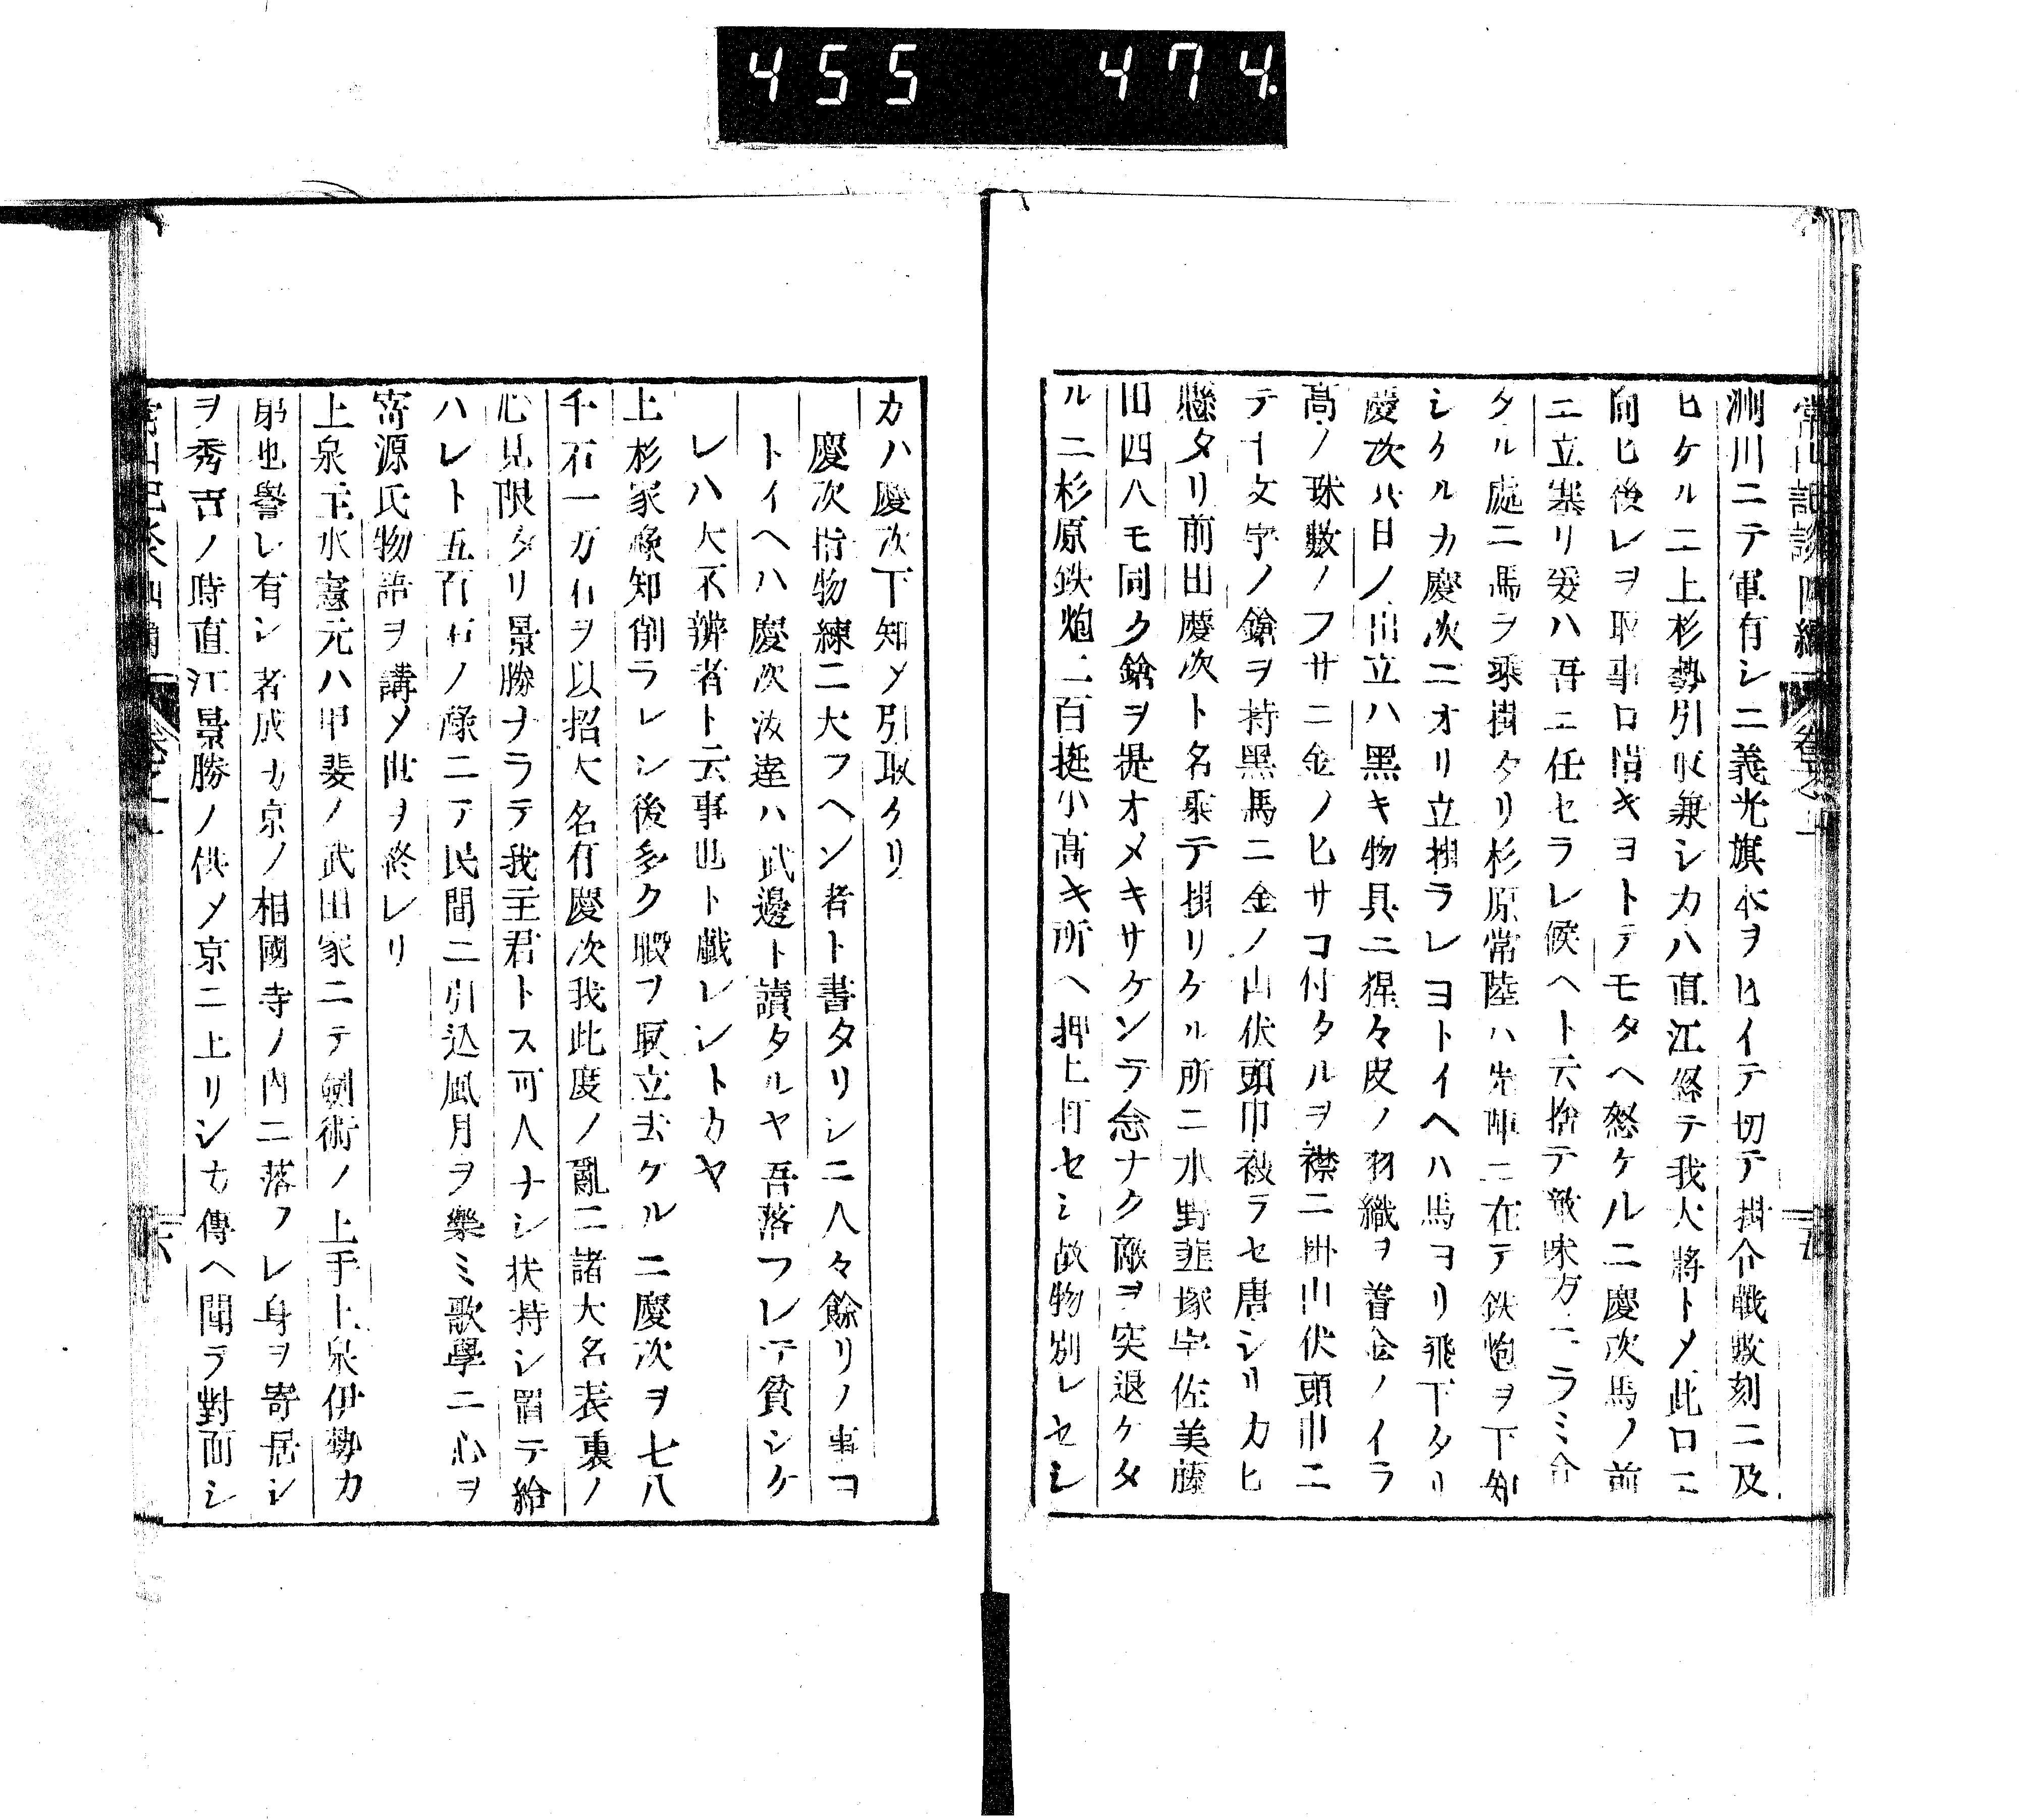 455 474
常山記談四編 卷之一
洲川ニテ軍有シニ義光旗本ヲヒイテ切テ掛合戰數刻ニ及
ヒケルニ上杉勢引取兼シカハ直江怒テ我大將トメ此口ニ
向ヒ後レヲ取事口惜キヨトテモタヘ怒ケルニ慶次馬ノ前
ニ立塞リ爰ハ吾ニ任セラレ候ヘト云捨テ敵味方ニラミ合
タル處ニ馬ヲ乘掛タリ杉原常陸ハ先陣ニ在テ鉄炮ヲ下知
シケルカ慶次ニオリ立掛ラレヨトイヘハ馬ヨリ飛下タリ
慶次ハ日ノ出立ハ黑キ物具ニ猩々皮ノ羽織ヲ着金ノイラ
高ノ珠數ノフサニ金ノヒサコ付タルヲ襟ニ掛山伏頭巾ニ
テ十文字ノ鎗ヲ持黑馬ニ金ノ山伏頭巾被ラセ唐シリカヒ
懸タリ前田慶次ト名乘テ掛リケル所ニ水野韮塚宇佐美藤
田四人モ同ク鎗ヲ提オメキサケンテ念ナク敵ヲ突退ケタ
ルニ杉原鉄炮二百挺小高キ所ヘ押上打セシ故物別レセシ
カハ慶次下知メ引取ケリ
慶次指物練ニ大フヘン者ト書タリシニ人々餘リノ事コ
トイヘハ慶次汝達ハ武邊ト讀タルヤ吾落フレテ貧シケ
レハ大不辨者ト云事也ト戲レシトカヤ
上杉家後知削ラレシ後多ク暇ヲ取立去ケルニ慶次ヲ七八
千石一万石ヲ以招大名有慶次我此度ノ亂ニ諸大名表裏ノ
心見限タリ景勝ナラテ我主君トス可人ナシ扶持シ置テ給
ハレト五百石ノ祿ニテ民間ニ引込風月ヲ樂ミ歌學ニ心ヲ
寄源氏物語ヲ講メ世ヲ終レリ
上泉主水憲元ハ甲斐ノ武田家ニテ劍術ノ上手上泉伊勢カ
弟也譽レ有シ者成カ京ノ相國寺ノ内ニ落フレ身ヲ寄居シ
ヲ秀吉ノ時直江景勝ノ供メ京ニ上リシカ傳ヘ聞ラ對面シ